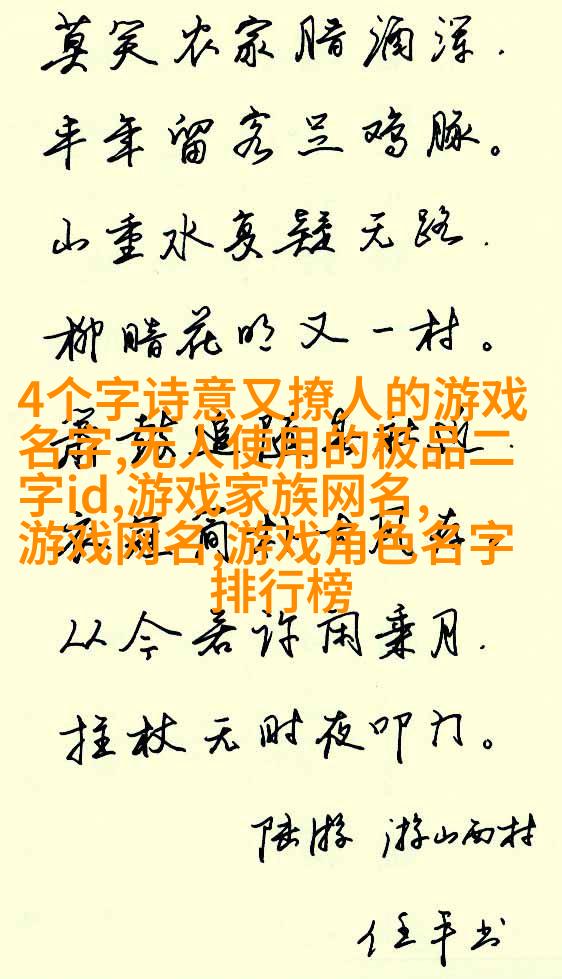 莫笑农家腊酒浑.
丰年留客足鸡豚。
山重水复疑无路.
柳暗花明又一村。
4个字诗意又撩人的游戏
名字,无人使用的极品二
字id,游戏家族网名,
游戏网名,游戏角色名字
排行榜
从今若许闲乘月.
拄杖无时夜叩门。
陆游 游山西村
任平书